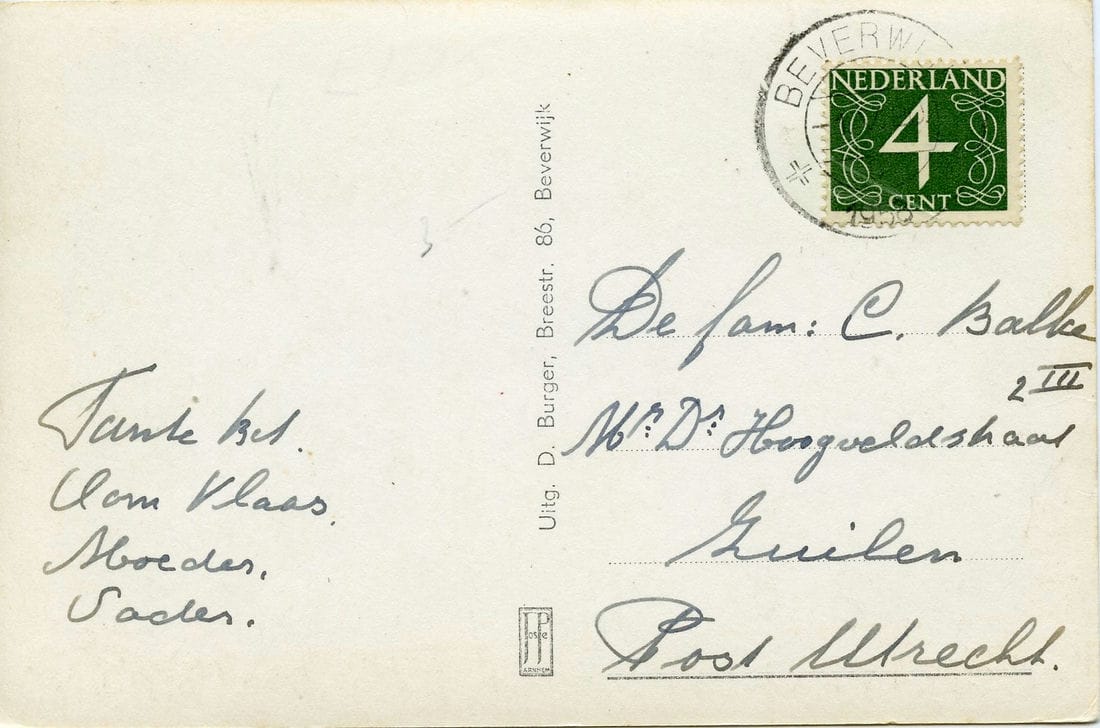 BEVERWI
1958
NEDERLAND
4
CENT
De fam: C. Balke
2 III
Mr. Dr. Hoogveldstraat
Zuilen
Post Utrecht.
Uitg. D. Burger, Breestr. 86, Beverwijk
JosPe
ARNHEM
Tante Bet.
Oom Klaas,
Moeder,
Vader.